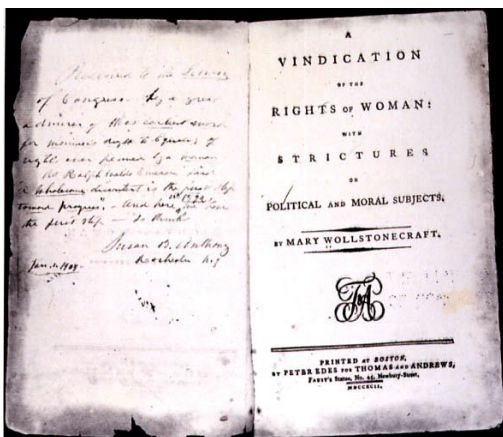 Presented to the Library
of Congress by a great
admirer of this earliest work
for woman's right to Equality of
rights ever penned by a woman
As Ralph Waldo Emerson said
"A wholesome discontent is the first step
toward progress" - And here in 1792 we have
the first step - so thinks
Susan B. Anthony
Rochester N.Y
Jan. 1. 1904.
A
VINDICATION
OF THE
RIGHTS OF WOMAN:
WITH
STRICTURES
ON
POLITICAL AND MORAL SUBJECTS.
BY MARY WOLLSTONECRAFT.
T&A
PRINTED AT BOSTON,
BY PETER EDES FOR THOMAS AND ANDREWS,
FAUST'S Statue, No. 45, Newbury-Street,
MDCCXCII.